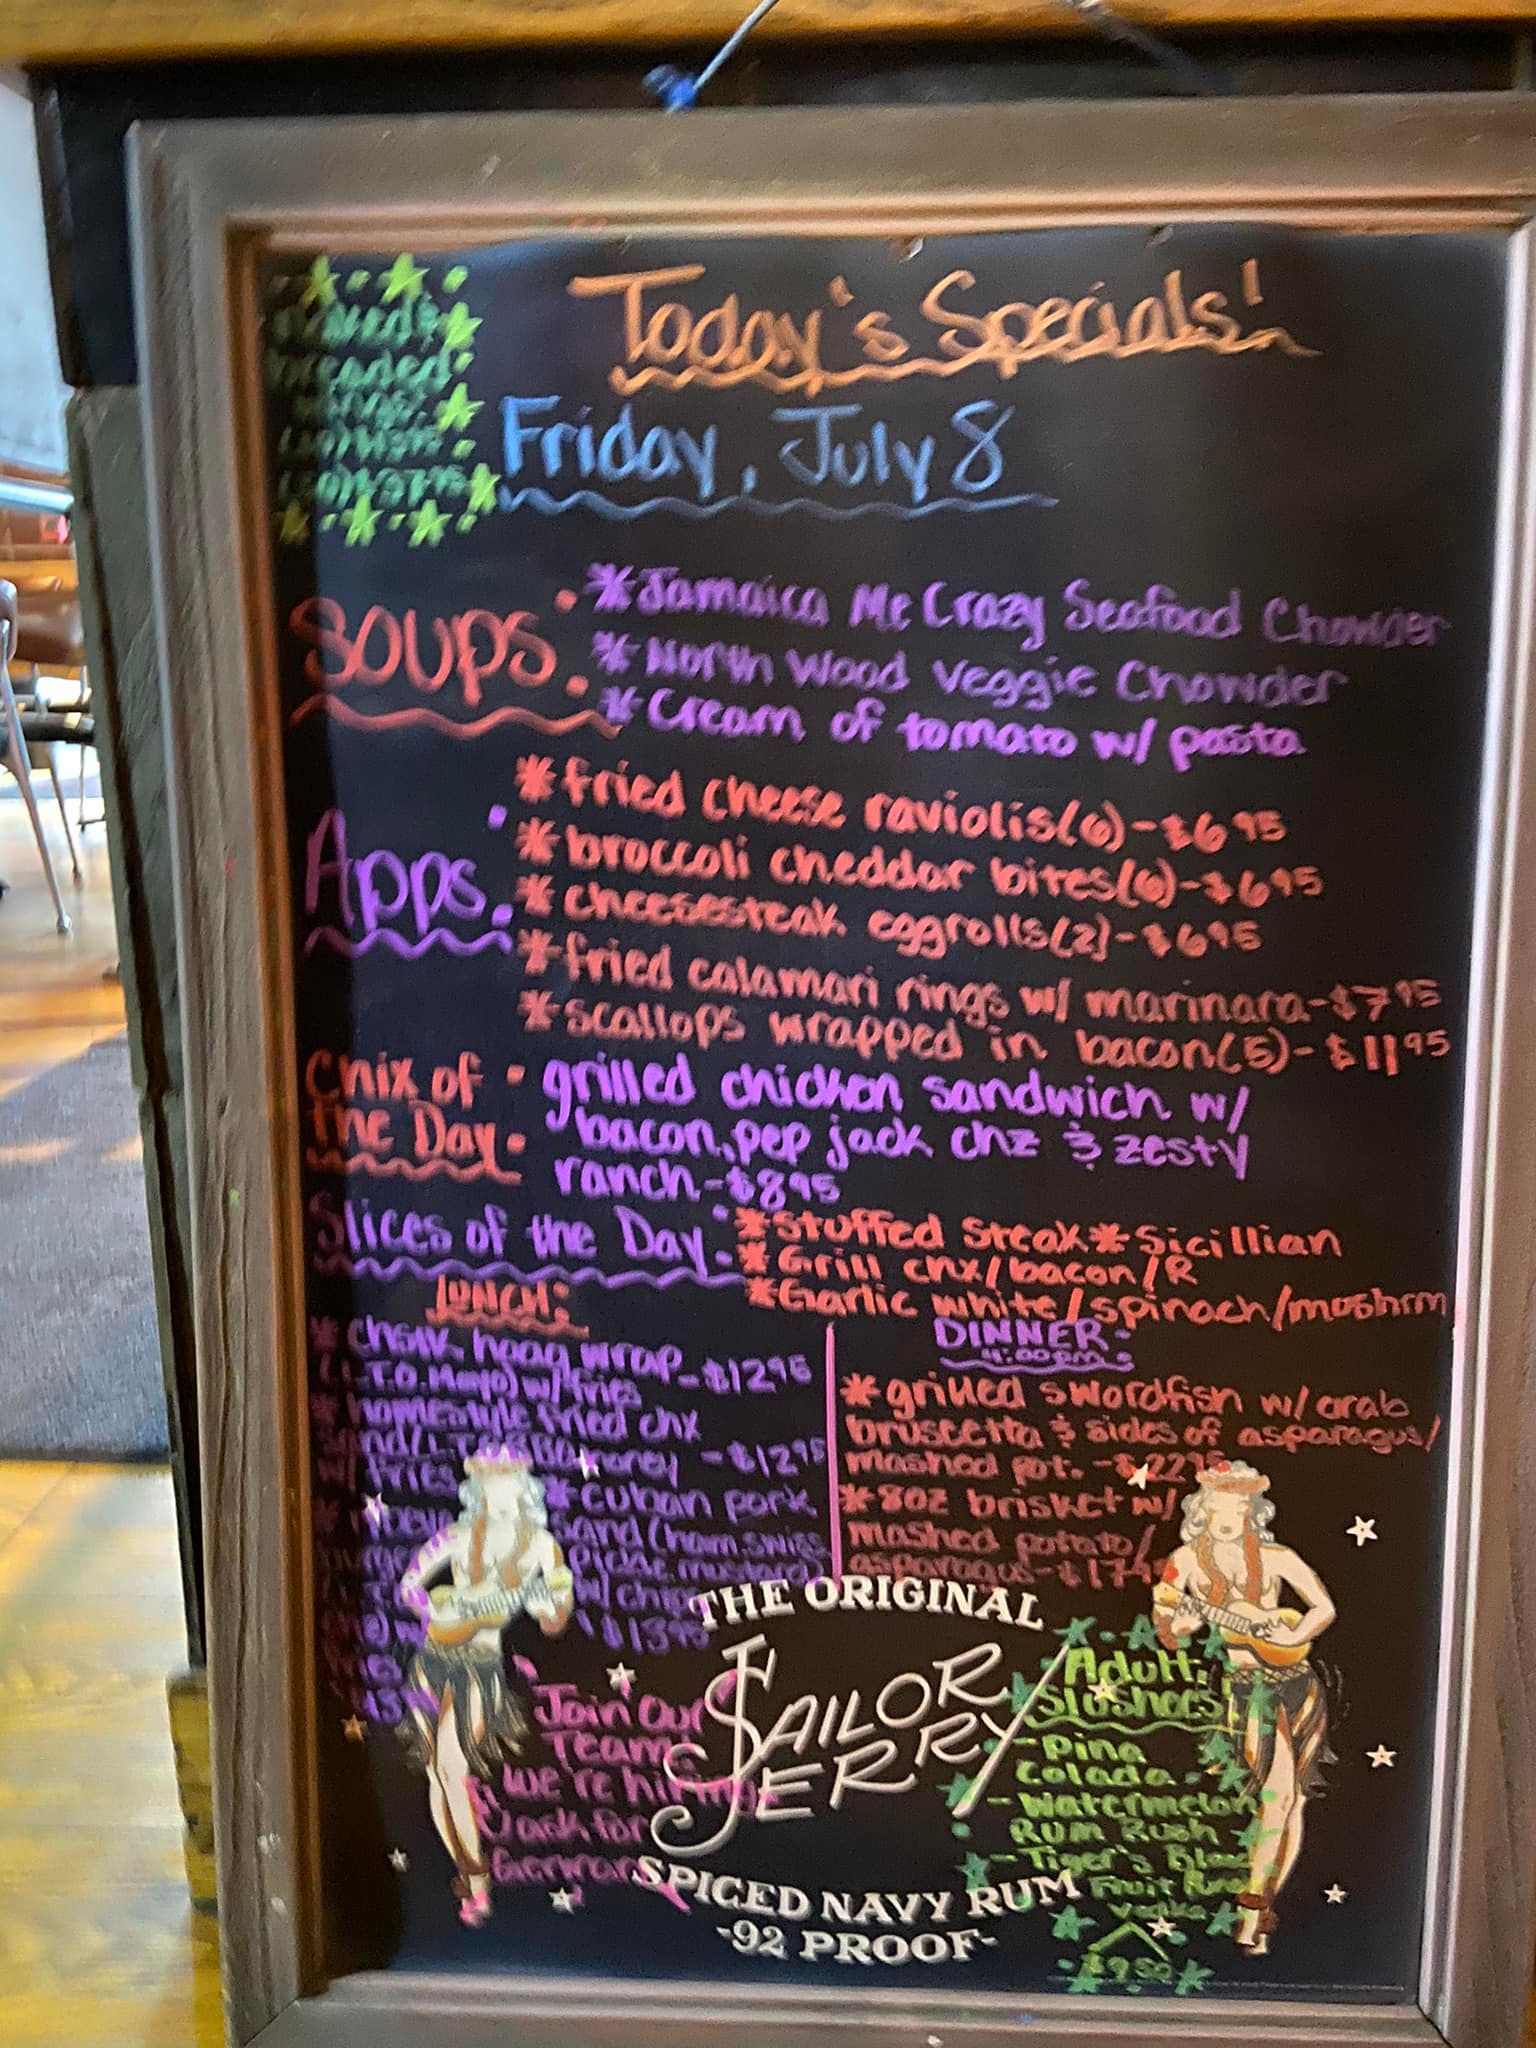 Today's Specials!
Friday, July 8
breaded
wings
SOUPS:
*Jamaica Me Crazy Seafood Chowder
*North Wood Veggie Chowder
*Cream of tomato w/ pasta
Apps:
*fried cheese raviolis(6)-$6.95
*broccoli cheddar bites(6)-$6.95
*cheesesteak eggrolls(2)-$6.95
*fried calamari rings w/ marinara-$7.95
*scallops wrapped in bacon(5)-$11.95
Chix of
the Day:
grilled chicken sandwich w/
bacon, pep jack chz & zesty
ranch-$8.95
Slices of the Day:
*Stuffed Steak*Sicillian
*Grill chx/bacon/R
*Garlic white/spinach/moshrm
LUNCH:
wrap-$12.95
T.O.Mayo) w/ fries
*homestyle fried chx
-$12.95
w/ fries
*cuban pork
sand (ham, swiss,
pickle, mustard)
w/ chips
$13.95
DINNER-
4:00pm
*grilled swordfish w/ crab
bruscetta & sides of asparagus/
mashed pot. -$22.95
*8oz brisket w/
mashed potato/
asparagus-$17
THE ORIGINAL
SAILOR
JERRY
SPICED NAVY RUM
-92 PROOF-
Join Our
Team
We're hiring
ask for
Adult
Slushers!
-Pina
Colada
-Watermelon
Rum Rush
-Tiger's Blood
Fruit
Vodka
$9.50